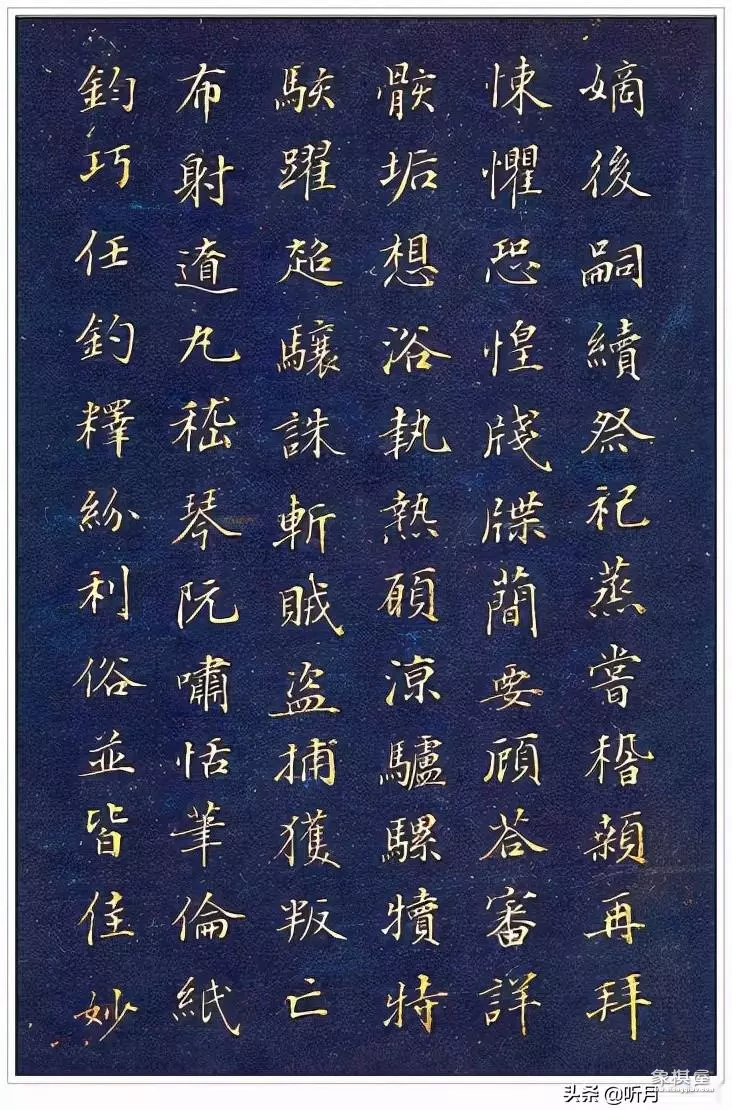 嫡後嗣續祭祀蒸嘗稽顙再拜
悚懼恐惶牋牒簡要顧荅審詳
骸垢想浴執熱願涼驢騾犢特
駭躍超驤誅斬賊盜捕獲叛亡
布射遼丸嵇琴阮嘯恬筆倫紙
鈞巧任釣釋紛利俗並皆佳妙
象棋屋
头条 @听月